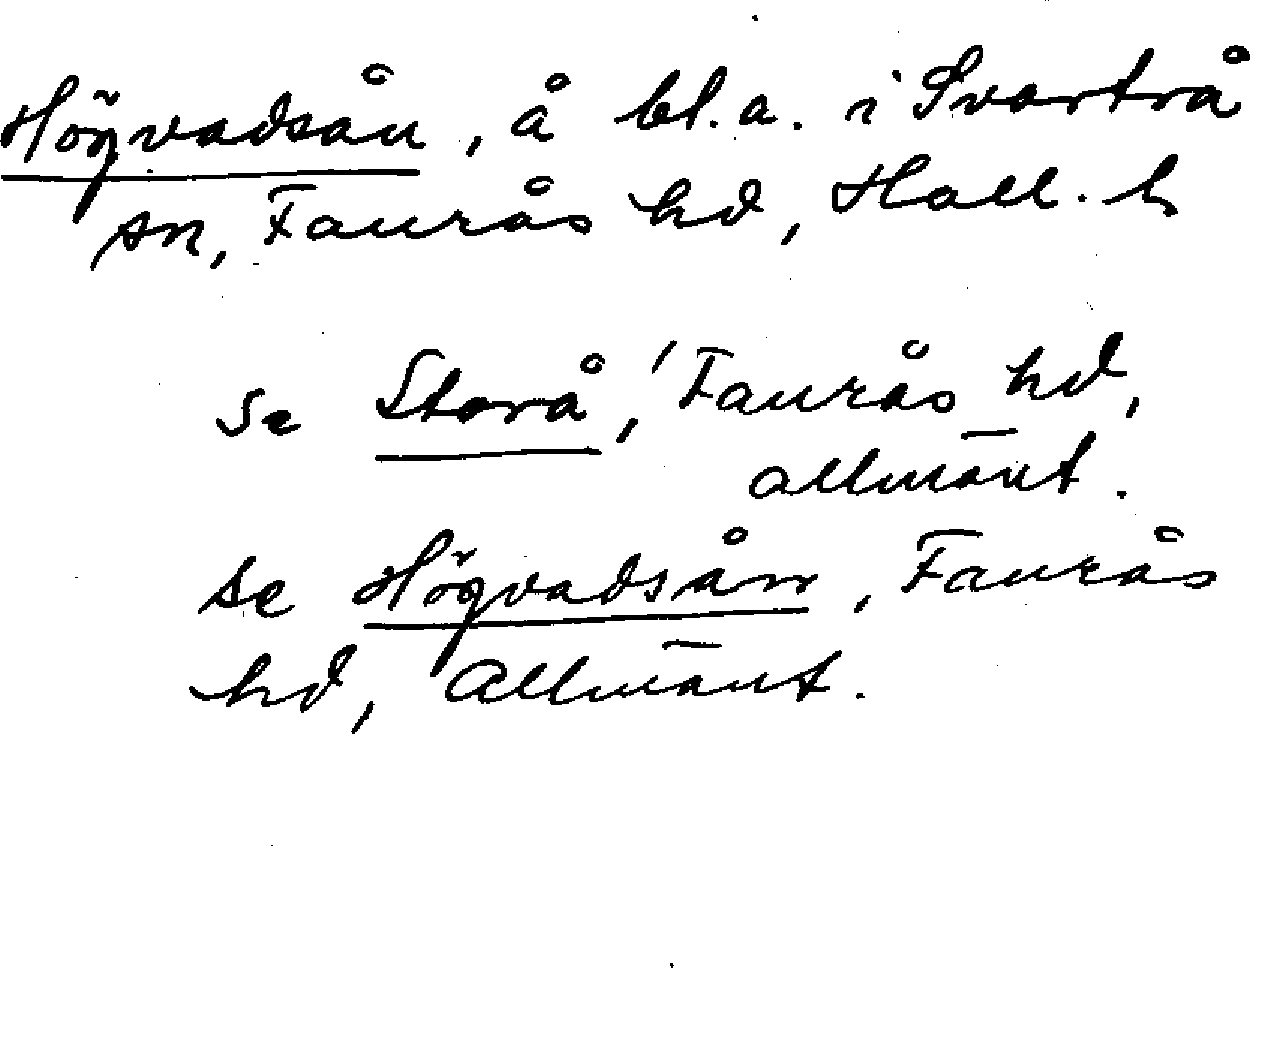 Högvadsån, å bl. a. i Svartrå
sn, Faurås hd, Hall. l.
se Storå, Faurås hd,
allmänt.
se Högvadsån, Faurås
hd, Allmänt.